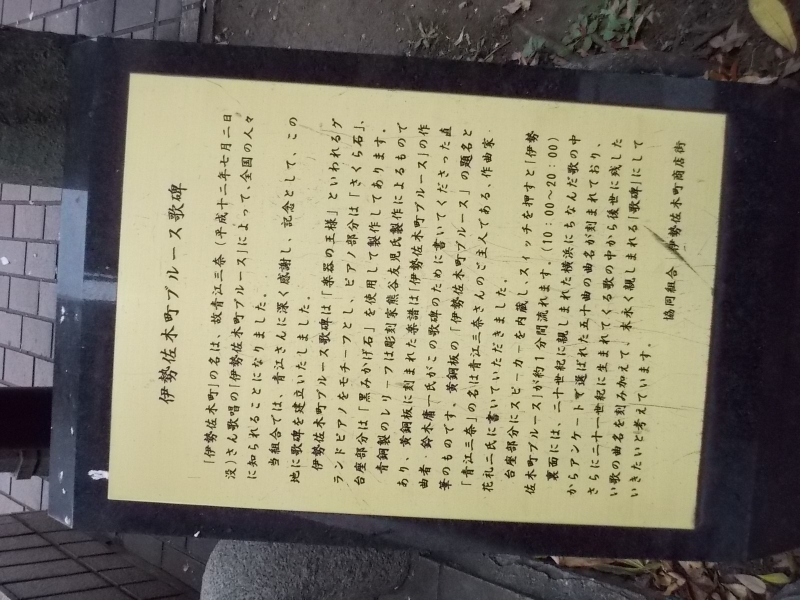 伊勢佐木町ブルース歌碑
「伊勢佐木町」の名は、故青江三奈（平成十二年七月二日
没）さん歌唱の「伊勢佐木町ブルース」によって、全国の人々
に知られることになりました。
当組合では、青江さんに深く感謝し、記念として、この
地に歌碑を建立いたしました。
伊勢佐木町ブルース歌碑は「楽器の王様」といわれるグ
ランドピアノをモチーフとし、ピアノ部分は「さくら石」、
台座部分は「黒みかげ石」を使用して製作してあります。
青銅製のレリーフは彫刻家熊谷友児氏製作によるもので
あり、黄銅板に刻まれた楽譜は「伊勢佐木町ブルース」の作
曲者・鈴木庸一氏がこの歌碑のために書いてくださった直
筆のものです。黄銅板の「伊勢佐木町ブルース」の題名と
「青江三奈」の名は青江三奈さんのご主人である、作曲家・
花礼二氏に書いていただきました。
台座部分にスピーカーを内蔵し、スイッチを押すと「伊勢
佐木町ブルース」が約１分間流れます。（10：00～20：00）
裏面には、二十世紀に親しまれた横浜にちなんだ歌の中
からアンケートで選ばれた五十曲の曲名が刻まれており、
さらに二十一世紀に生まれてくる歌の中から後世に残した
い歌の曲名を刻み加えて、末永く親しまれる「歌碑」にして
いきたいと考えています。
協同組合 伊勢佐木町商店街